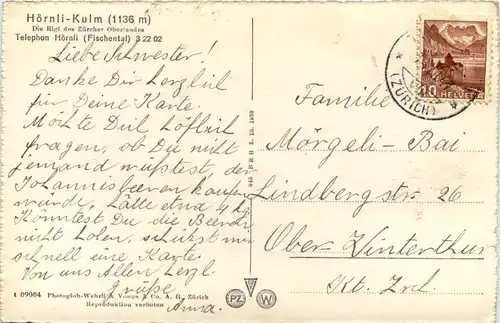 Hörnli-Kulm (1136 m)
Die Rigi des Zürcher Oberlandes
Telephon Hörnli (Fischental) 3 22 02
Liebe Schwester!
Danke Dir herzlich
für Deine Karte.
Möchte Dich höflich
fragen, ob Du nicht
jemand wüsstest, der
Johannisbeeren kaufen
würde, hätte etwa 4 kg
Könntest Du die Beeren
nicht holen, schickst mir
schnell eine Karte.
Von uns Allen herzl.
Grüsse
Anna.
Familie
Mörgeli-Bai
Lindbergstr. 26
Ober-Winterthur
Kt. Zrch.
10 HELVETIA
(ZÜRICH)
1 09084 Photoglob-Wehrli & Vouga & Co. A. G. Zürich
Reproduktion verboten
PZ W